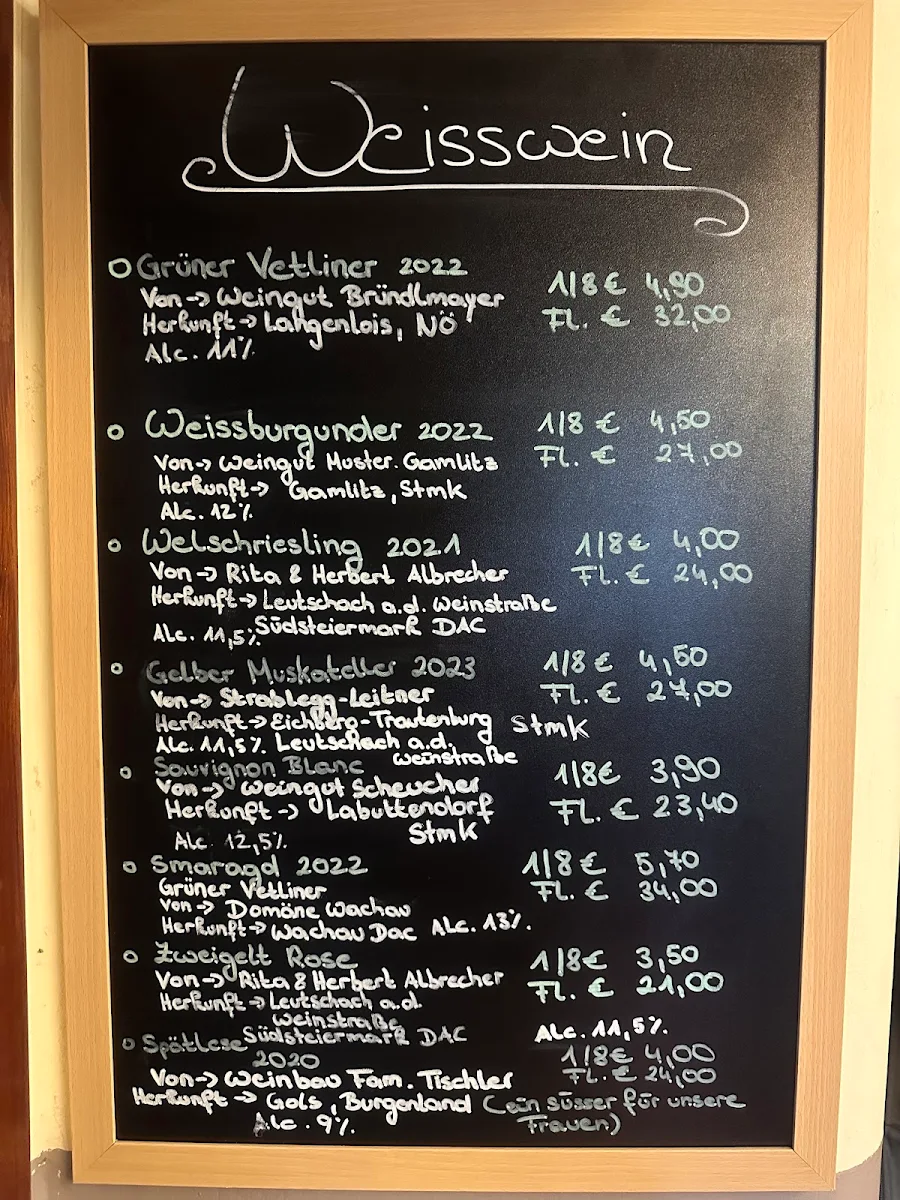 Weisswein
o Grüner Vetliner 2022
1/8 € 4,90
Von -> Weingut Bründlmayer
Fl. € 32,00
Herkunft -> Langenlois, NÖ
Alc. 11%
o Weissburgunder 2022
1/8 € 4,50
Fl. € 27,00
Von -> Weingut Muster. Gamlitz
Herkunft -> Gamlitz, Stmk
Alc. 12%
o Welschriesling 2021
1/8 € 4,00
Von -> Rita & Herbert Albrecher
Fl. € 24,00
Herkunft -> Leutschach a.d. Weinstraße
Südsteiermark DAC
Alc. 11,5%
o Gelber Muskateller 2023
1/8 € 4,50
Von -> Strablegg-Leitner
Fl. € 27,00
Herkunft -> Eichberg-Trautenburg Stmk
Alc. 11,5% Leutschach a.d.
Weinstraße
o Sauvignon Blanc
1/8 € 3,90
Von -> Weingut Scheucher
Herkunft -> Labuttendorf
Fl. € 23,40
Stmk
Alc. 12,5%
o Smaragd 2022
1/8 € 5,70
Grüner Vetliner
Fl. € 34,00
Von -> Domäne Wachau
Herkunft -> Wachau Dac Alc. 13%.
o Zweigelt Rose
1/8 € 3,50
Von -> Rita & Herbert Albrecher
Fl. € 21,00
Herkunft -> Leutschach a.d.
Weinstraße
Südsteiermark DAC
Alc. 11,5%.
o Spätlese
2020
1/8 € 4,00
Fl. € 24,00
Von -> Weinbau Fam. Tischler
Herkunft -> Gols, Burgenland (ein süsser für unsere
Frauen)
Alc. 9%.